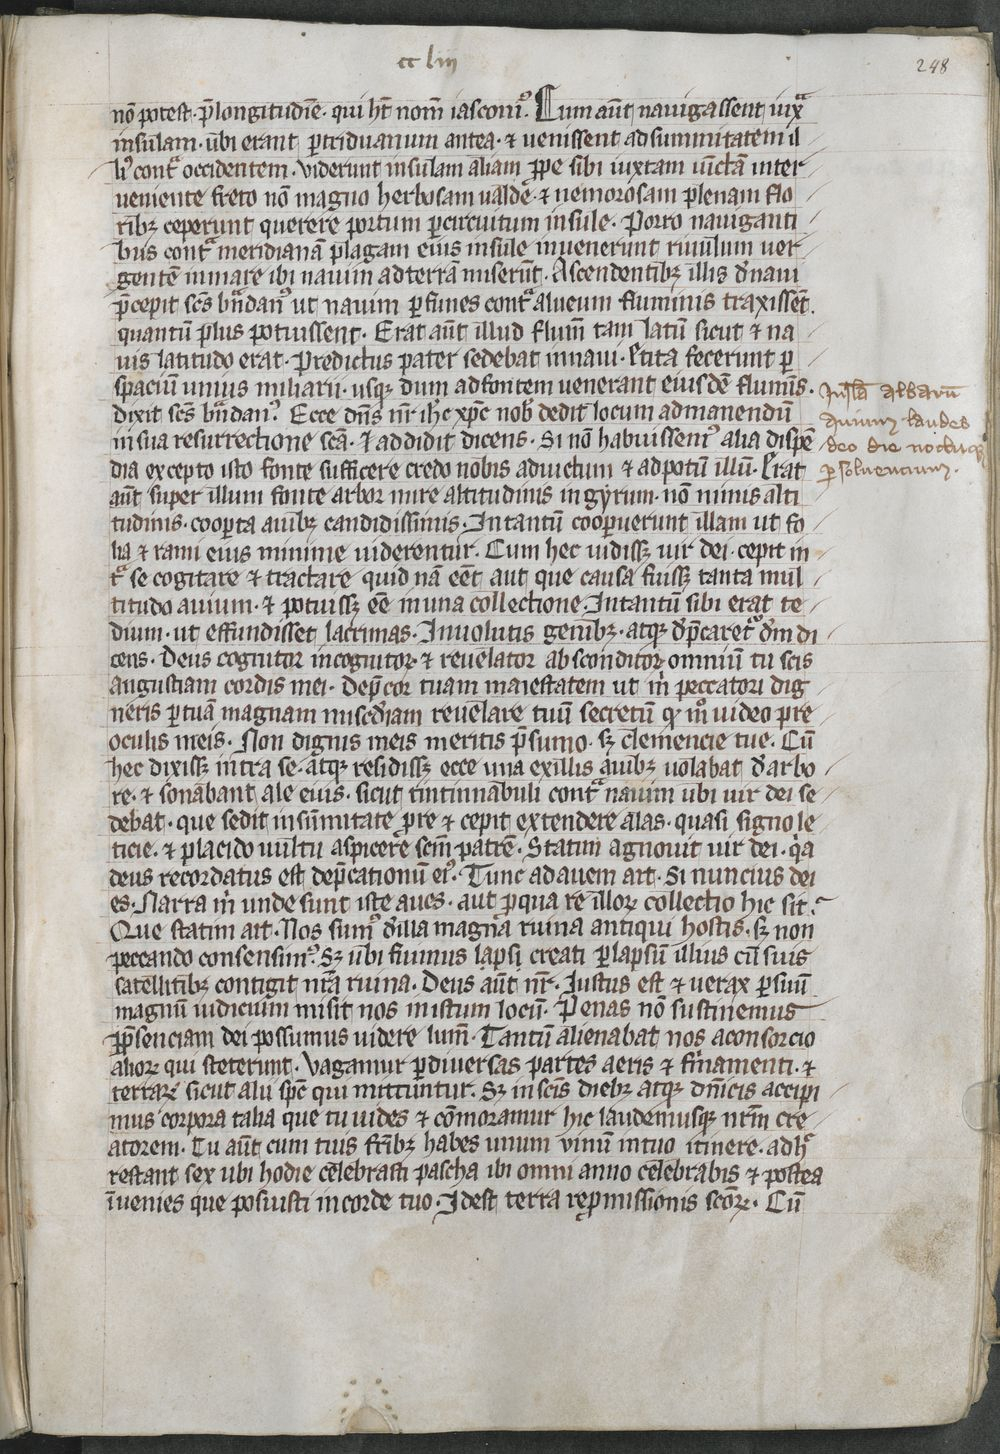 cc liii
248
nō potest · p̄ longitudīe · qui ht̄ nom̄ iasconi⁹. Cum aūt nauigassent iuxᵃ
insulam · ubi erant p̲ triduanum antea · ⁊ uenissent ad summitatem il
li⁹ contᵃ occidentem · viderunt insulam aliam ꝓpe sibi iuxtam iūctā inter
ueniente freto nō magno herbosam ualde · ⁊ nemorosam plenam flo
ribꝫ ceperunt querere portum ꝑ circuitum insule · Porro nauiganti
bus contᵃ meridianā plagam eius insule inuenerunt riuulum uer
gentē in mare ibi nauim ad terrā miserūt. Ascendentibꝫ illis d̓ naui
p̄cepit scs̄ br̄andan⁹ ut nauim ꝑ funes contᵃ alueum fluminis traxissēt.
quantū plus potuissent. Erat aūt illud flum̄ tam latū sicut ⁊ na
uis latitudo erat · Predictus pater sedebat in naui · Et ita fecerunt ꝑ
spaciū unius miliarii · usqꝫ dum ad fontem venerant eiusdē flumīs ·
dixit scs̄ br̄andan⁹ Ecce dn̄s nr̄ ihc̄ xp̄c nob̄ dedit locum ad manendū
in sua resurrectione scā · Et addidit dicens · Si nō habuissem⁹ alia dispē
dia excepto isto fonte sufficere credo nobis ad uictum ⁊ ad potū illū · Erat
aūt super illum fonte arbor mire altitudinis in gyrum · nō nimis alti
tudinis · coopta auibꝫ candidissimis · In tantū cooꝑuerunt illam ut fo
lia ⁊ rami eius minime uiderentur. Cum hec uidissꝫ uir dei · cepit in
tᵃ se cogitare ⁊ tractare quid nā eēt aut que causa fuissꝫ tanta mul
titudo auium · ⁊ potuissꝫ eē in una collectione In tantū sibi erat te
dium · ut effundisset lacrimas · Inuolutis genibꝫ · atqꝫ d̓p̄caretᵃ dm̄ di
cens · Deus cognitor incognitoꝝ ⁊ reuelator absconditoꝝ omniū tu scis
angustiam cordis mei · dep̄cor tuam maiestatem ut m̄ peccatori dig
neris ꝑ tuā magnam misc̄diam reuelare tuū secretū qᵈ mᵒ video pre
oculis meis · Non dignus meis meritis p̄sumo · sꝫ clemencie tue. Cū
hec dixissꝫ intra se · atqꝫ resedissꝫ ecce una ex illis auibꝫ uolabat d̓ arbo
re · ⁊ sonabant ale eius · sicut tintinnabuli contᵃ nauim ubi uir dei se
debat · que sedit in sūmitate ꝓre ⁊ cepit extendere alas · quasi signo le
ticie · ⁊ placido uultu aspicere scm̄ patrē · Statim agnouit uir dei · q̓a
deus recordatus est dep̄cationū ei⁹. Tunc ad auem ait · Si nuncius dei
es · Narra m̄ unde sunt iste aues · aut ꝓ qua re illoꝝ collectio hic sit ·
Que statim ait · Nos sum⁹ d̓ illa magna ruina antiqui hostis · sꝫ non
peccando consensim⁹. Sꝫ ubi fuimus lapsi creati ꝑ lapsū illius cū suis
satellitibꝫ contigit nr̄a ruina. Deus aūt nr̄ · Iustus est ⁊ verax ꝑ suū
magnū iudicium misit nos in istum locū. Penas nō sustinemus
ꝑp̄senciam dei possumus uidere lum̄ · Tantū alienabat nos a consorcio
alioꝝ qui steterunt. Vagamur ꝑ diuersas partes aeris ⁊ firmamenti · ⁊
terraꝝ sicut alii sp̄c qui mittuntur. Sꝫ in scīs diebꝫ atqꝫ dn̄icis accipi
mus corpora talia que tu uides ⁊ cōmoramur hic laudemusqꝫ nr̄m cre
atorem · Tu aūt cum tuis fr̄ibꝫ habes unum vnnū in tuo itinere · adhᵃ
restant sex ubi hodie celebrasti pascha ibi omni anno celebrabis ⁊ postea
īuenies que posuisti in corde tuo · Id est terra repromissionis scōꝝ · Cū
Insl̄a albarū
auium laudes
deo die noctuqꝫ
ꝑsoluencium.